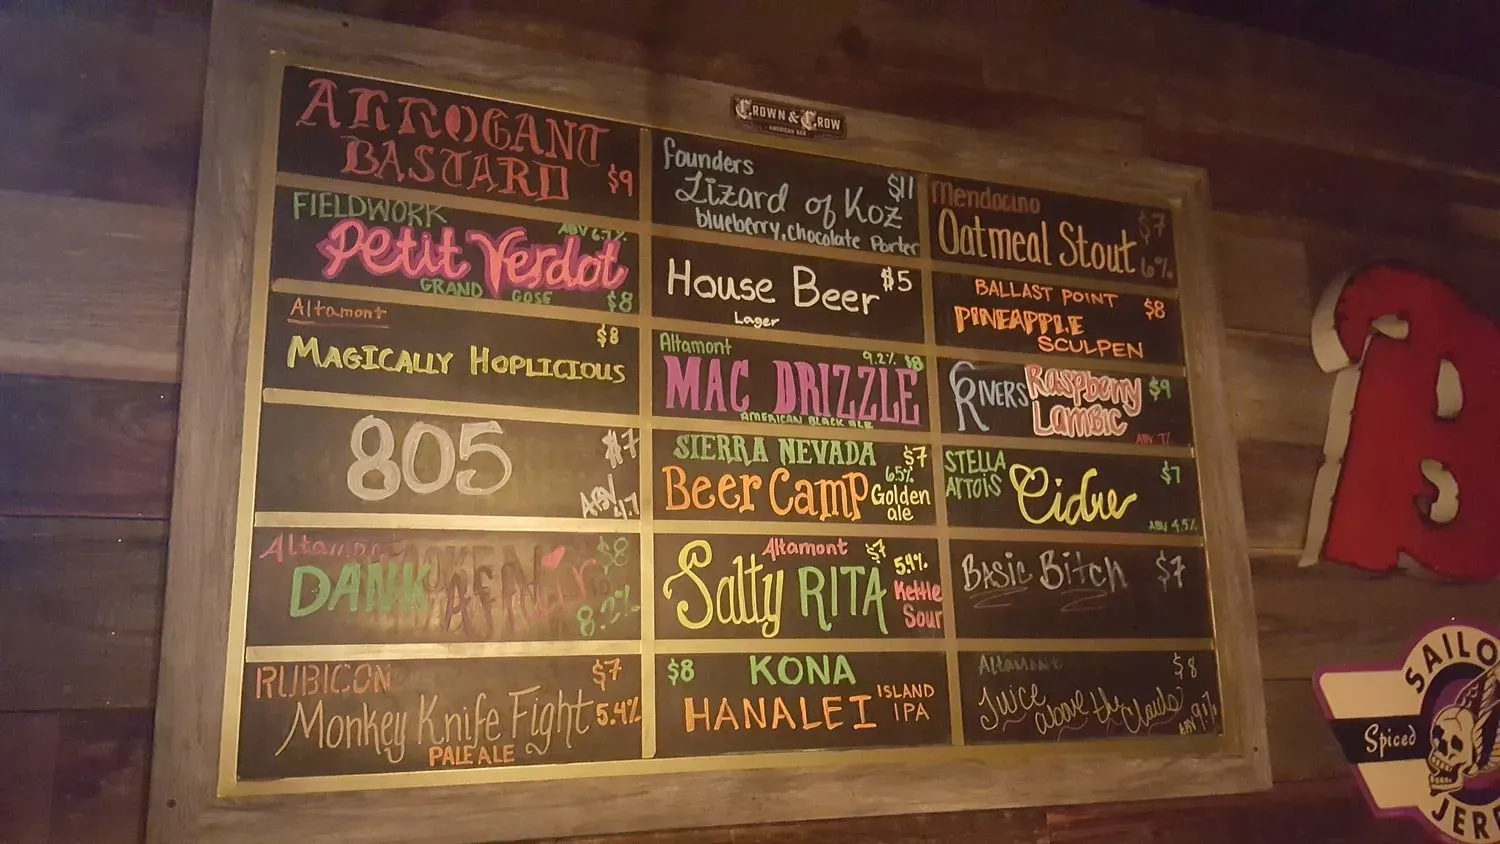 CROWN & CROW
AMERICAN BAR
ARROGANT
BASTARD $9
FIELDWORK
ABV 6.7%
Petit Verdot
GRAND GOSE $8
Altamont
$8
MAGICALLY HOPLICIOUS
805 $7
ABV 4.7
Altamont $8
DANK
8.2%
RUBICON $7
Monkey Knife Fight 5.4%
PALE ALE
founders $11
Lizard of Koz
blueberry, chocolate Porter
House Beer $5
Lager
Altamont 9.2% $8
MAC DRIZZLE
AMERICAN BLACK ALE
SIERRA NEVADA $7
6.5%
Beer Camp Golden
ale
Altamont $7
5.4%
Salty RITA Kettle
Sour
$8 KONA
HANALEI ISLAND
IPA
Mendocino $7
Oatmeal Stout 6%
BALLAST POINT $8
PINEAPPLE
SCULPEN
2 RIVERS Raspberry $9
Lambic
ABV 7%
STELLA
ARTOIS Cidre $7
ABV 4.5%
BASIC BITCH $7
Altamont $8
Juice above the clouds
SAILO
Spiced
JER